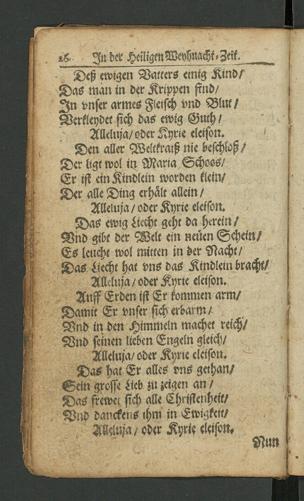 26. In der Heiligen Weyhnacht-Zeit.
Deß ewigen Vatters einig Kind/
Das man in der Krippen find/
In vnser armes Fleisch vnd Blut/
Verkleydet sich das ewig Guth/
Alleluja/ oder Kyrie eleison.
Den aller Weltkraiß nie beschloß/
Der ligt wol in Maria Schoos/
Er ist ein Kindlein worden klein/
Der alle Ding erhält allein/
Alleluja/ oder Kyrie eleison.
Das ewig Liecht geht da herein/
Vnd gibt der Welt ein neuen Schein/
Es leucht wol mitten in der Nacht/
Das Liecht hat vns das Kindlein bracht/
Alleluja/ oder Kyrie eleison.
Auff Erden ist Er kommen arm/
Damit Er vnser sich erbarm/
Vnd in den Himmeln machet reich/
Vnd seinen lieben Engeln gleich/
Alleluja/ oder Kyrie eleison.
Das hat Er alles vns gethan/
Sein grosse Lieb zu zeigen an/
Das frewet sich alle Christenheit/
Vnd danckens ihm in Ewigkeit/
Alleluja/ oder Kyrie eleison.
Nun